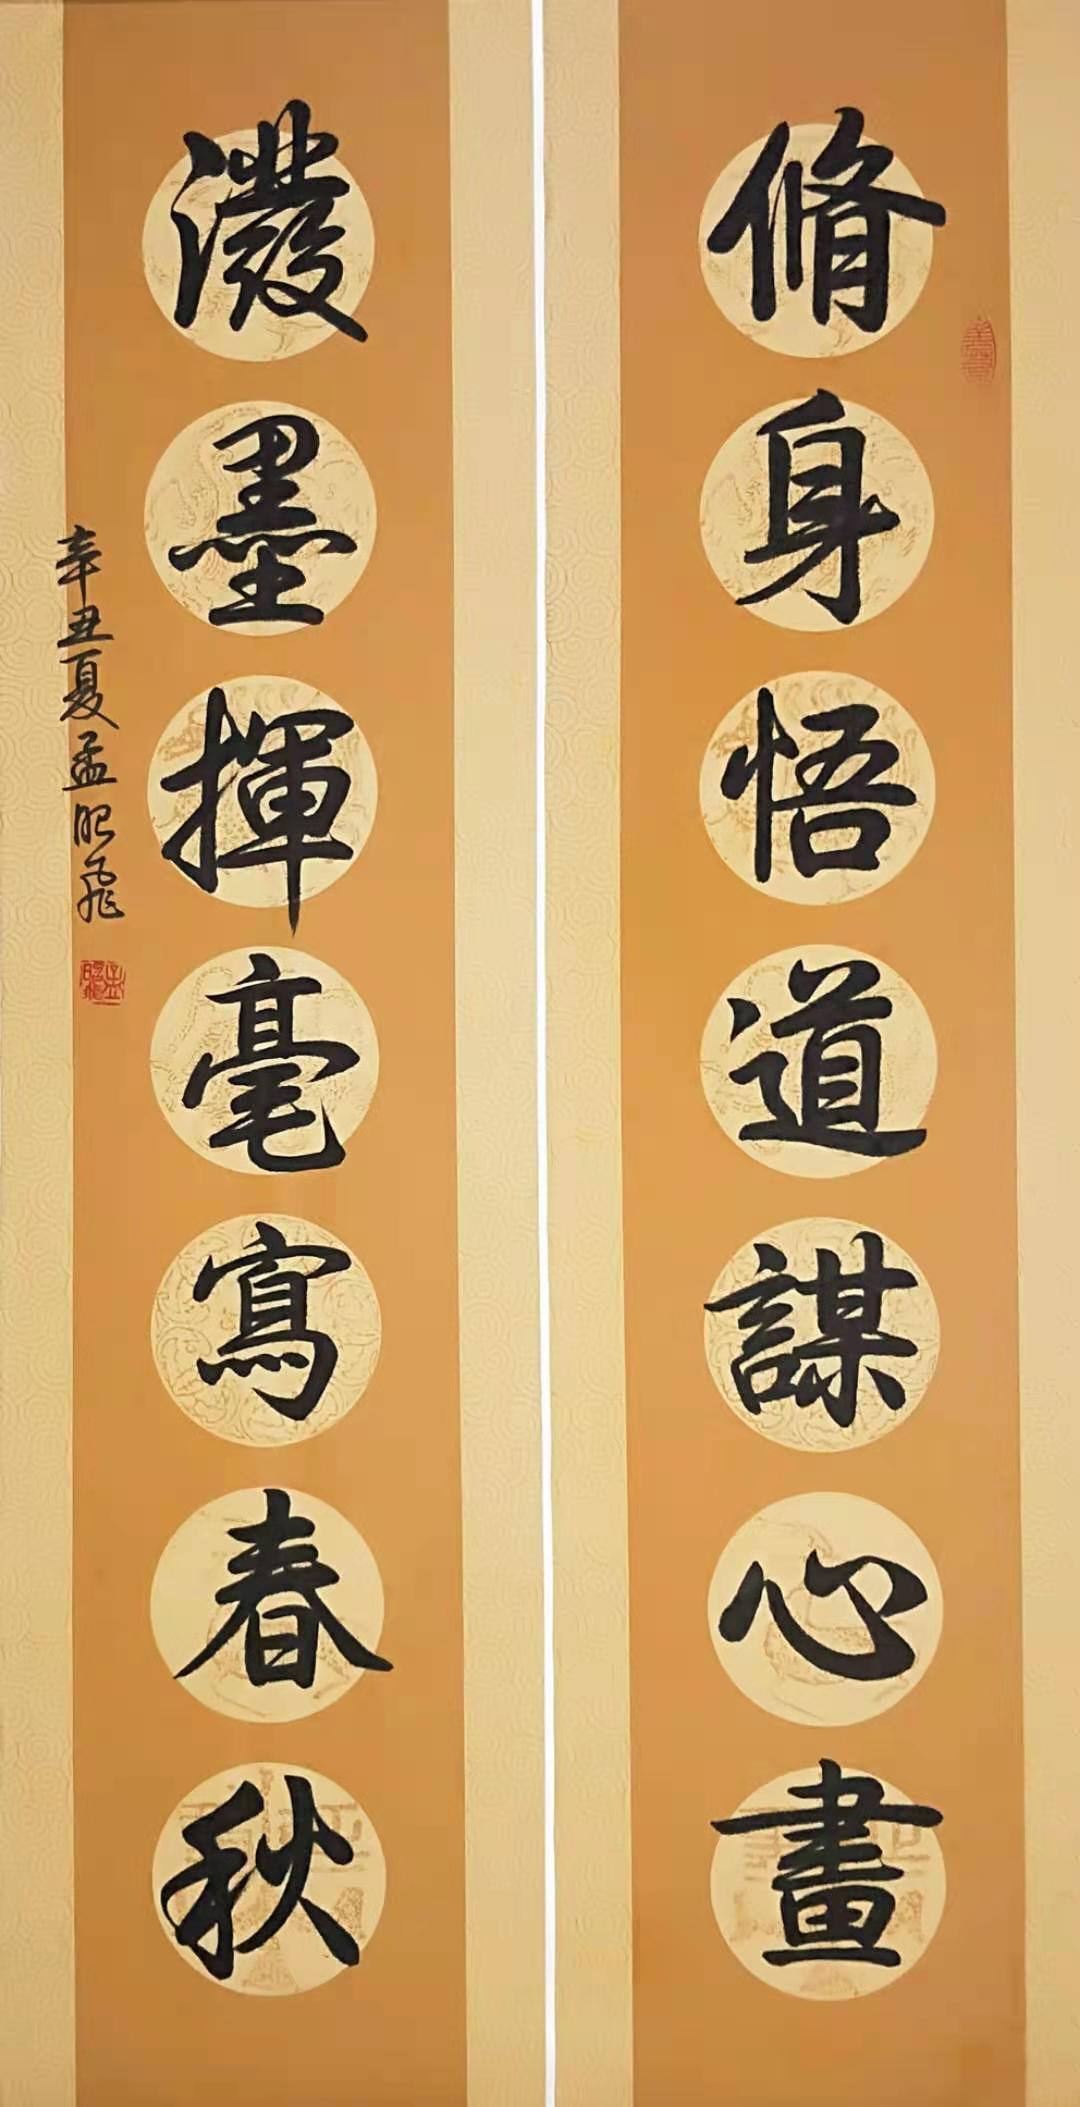 脩身悟道謀心畫
潑墨揮毫寫春秋
辛丑夏孟肥飛